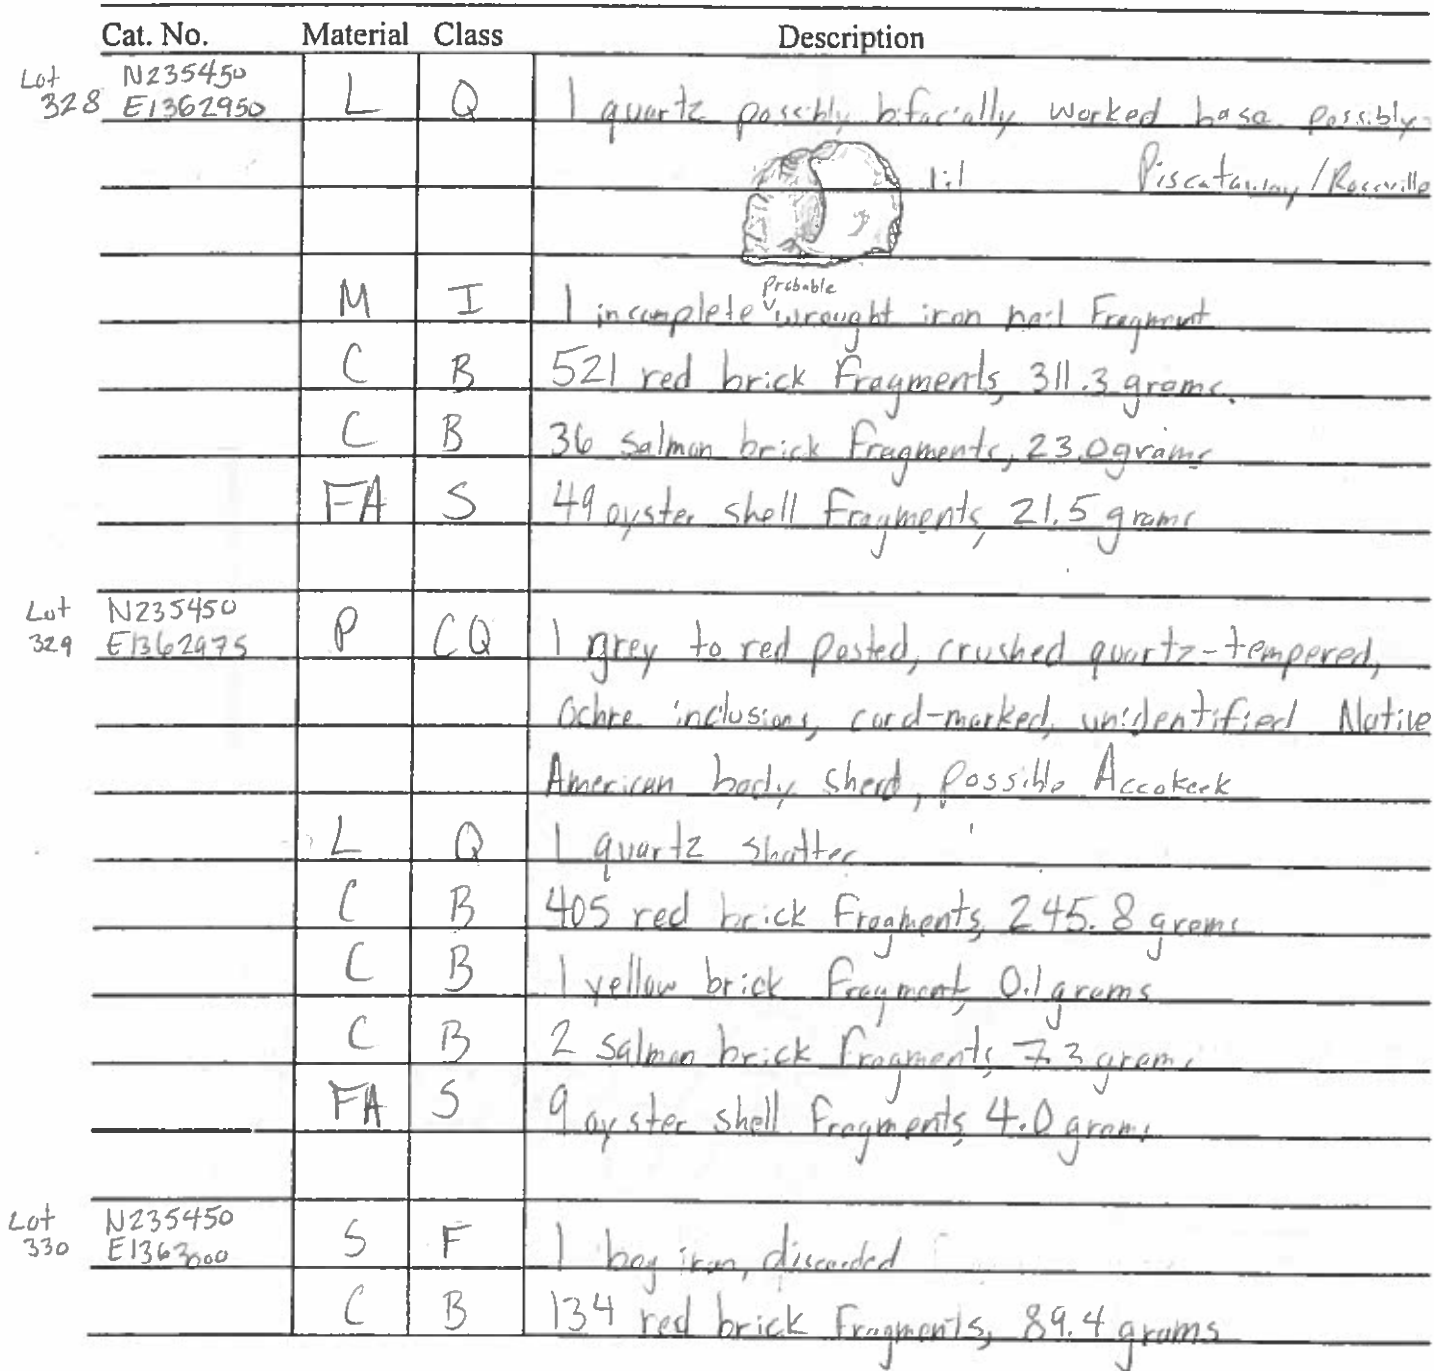 Cat. No. Material Class Description
Lot 328 N235450 E1362950 L Q 1 quartz possibly bifacially worked base possibly
1:1 Piscataway/Rossville
M I 1 incomplete probable wrought iron nail fragment
C B 521 red brick fragments, 311.3 grams.
C B 36 salmon brick fragments, 23.0 grams
FA S 49 oyster shell fragments, 21.5 grams
Lot 329 N235450 E1362975 P CQ 1 grey to red pasted, crushed quartz-tempered,
ochre inclusions, cord-marked, unidentified Native
American body sherd, possible Accokeek
L Q 1 quartz shatter
C B 405 red brick fragments, 245.8 grams
C B 1 yellow brick fragment, 0.1 grams
C B 2 salmon brick fragments, 7.3 grams
FA S 9 oyster shell fragments, 4.0 grams
Lot 330 N235450 E1363000 S F 1 bog iron, discarded
C B 134 red brick fragments, 89.4 grams